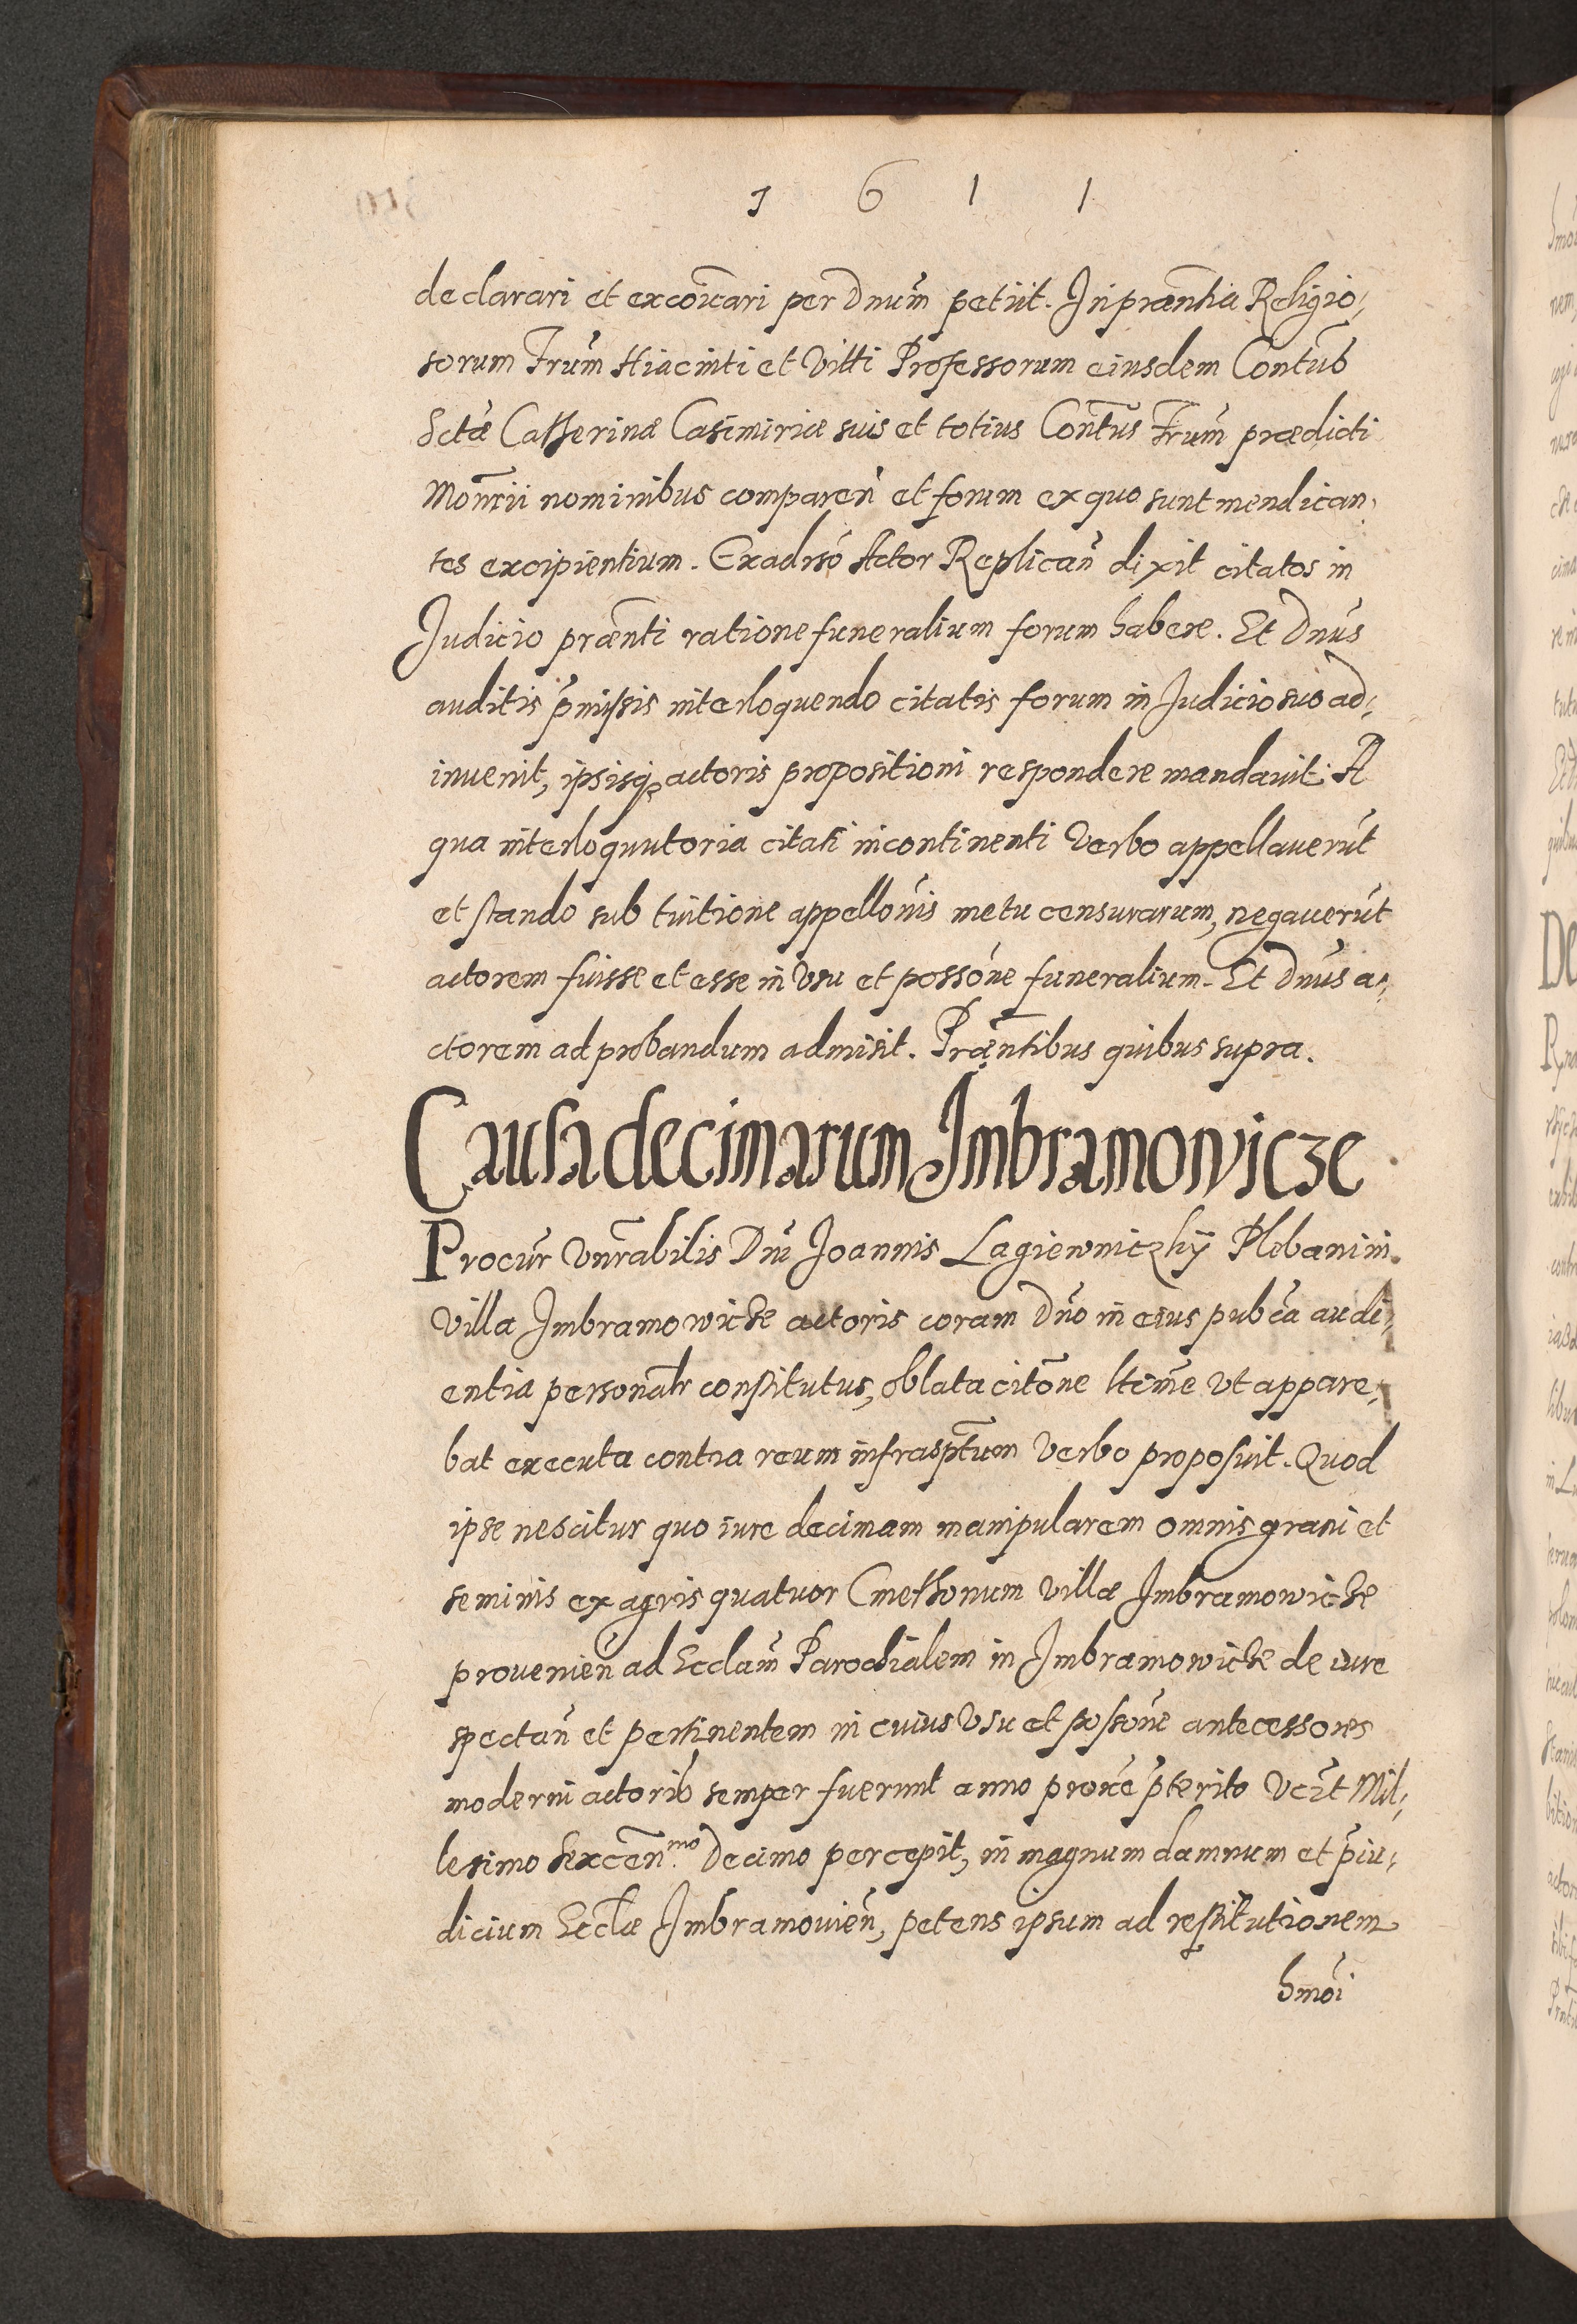 1611
declarari et excōicari per Dnūm petiit. In præntia Religio,
sorum Frūm Hiacinti et Vitti Professorum eiusdem Contūs
Sctæ Catherinæ Casimiriæ suis et totius Contūs Frūm prædicti
Monrii nominibus comparen̄ et forum ex quo sunt mendican,
tes excipientium. Exadrso Actor Replican̄ dixit citatos in
Judicio prænti ratione funeralium forum habere. Et Dnūs
auditis p̄missis interloquendo citatis forum in Judicio suo ad,
inuenit, ipsisq; actoris propositioni respondere mandauit. A
qua interloquutoria citati incontinenti Verbo appellauerūt
et stando sub tuitione appellōnis metu censurarum, negauerūt
actorem fuisse et esse in Vsu et possōne funeralium. Et Dnūs a,
ctorem ad probandum admisit. Præntibus quibus supra.
Causa decimarum Imbramowicze
Procūr Vnrabilis Dnī Joannis Lagiewniczkÿ Plebani in
Villa Imbramowicze actoris coram Dnō in eius pubca audi,
entia personalr constitutus, oblata citōne ltīme Vt appare,
bat executa contra reum infrasptum Verbo proposuit. Quod
ipse nescitur quo iure decimam manipularem omnis grani et
seminis ex agris quatuor Cmethonum Villæ Imbramowicze
prouenien̄ ad Ecclam̄ Parochialem in Imbramowicze de iure
spectan̄ et pertinentem in cuius Vsu et possōne antecessores
moderni actoris semper fuerunt anno proxe p̄terito Vc̄zt Mil,
lesimo Sexcen̄.mo Decimo percepit, in magnum damnum et p̄iu,
dicium Ecclæ Imbramouien̄, petens ipsum ad restitutionem
hmōi